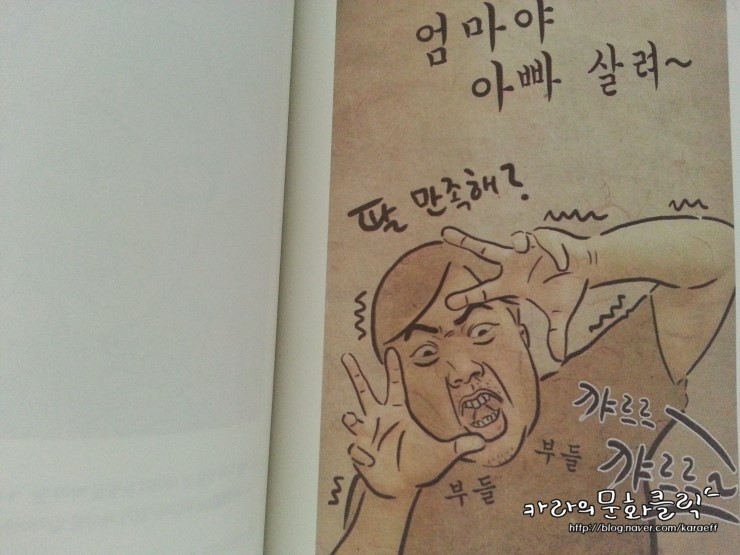 엄마야
아빠 살려~
딸 만족해?
꺄르르
꺄르르
부들
부들
카라의문화클릭
http://blog.naver.com/karaeff